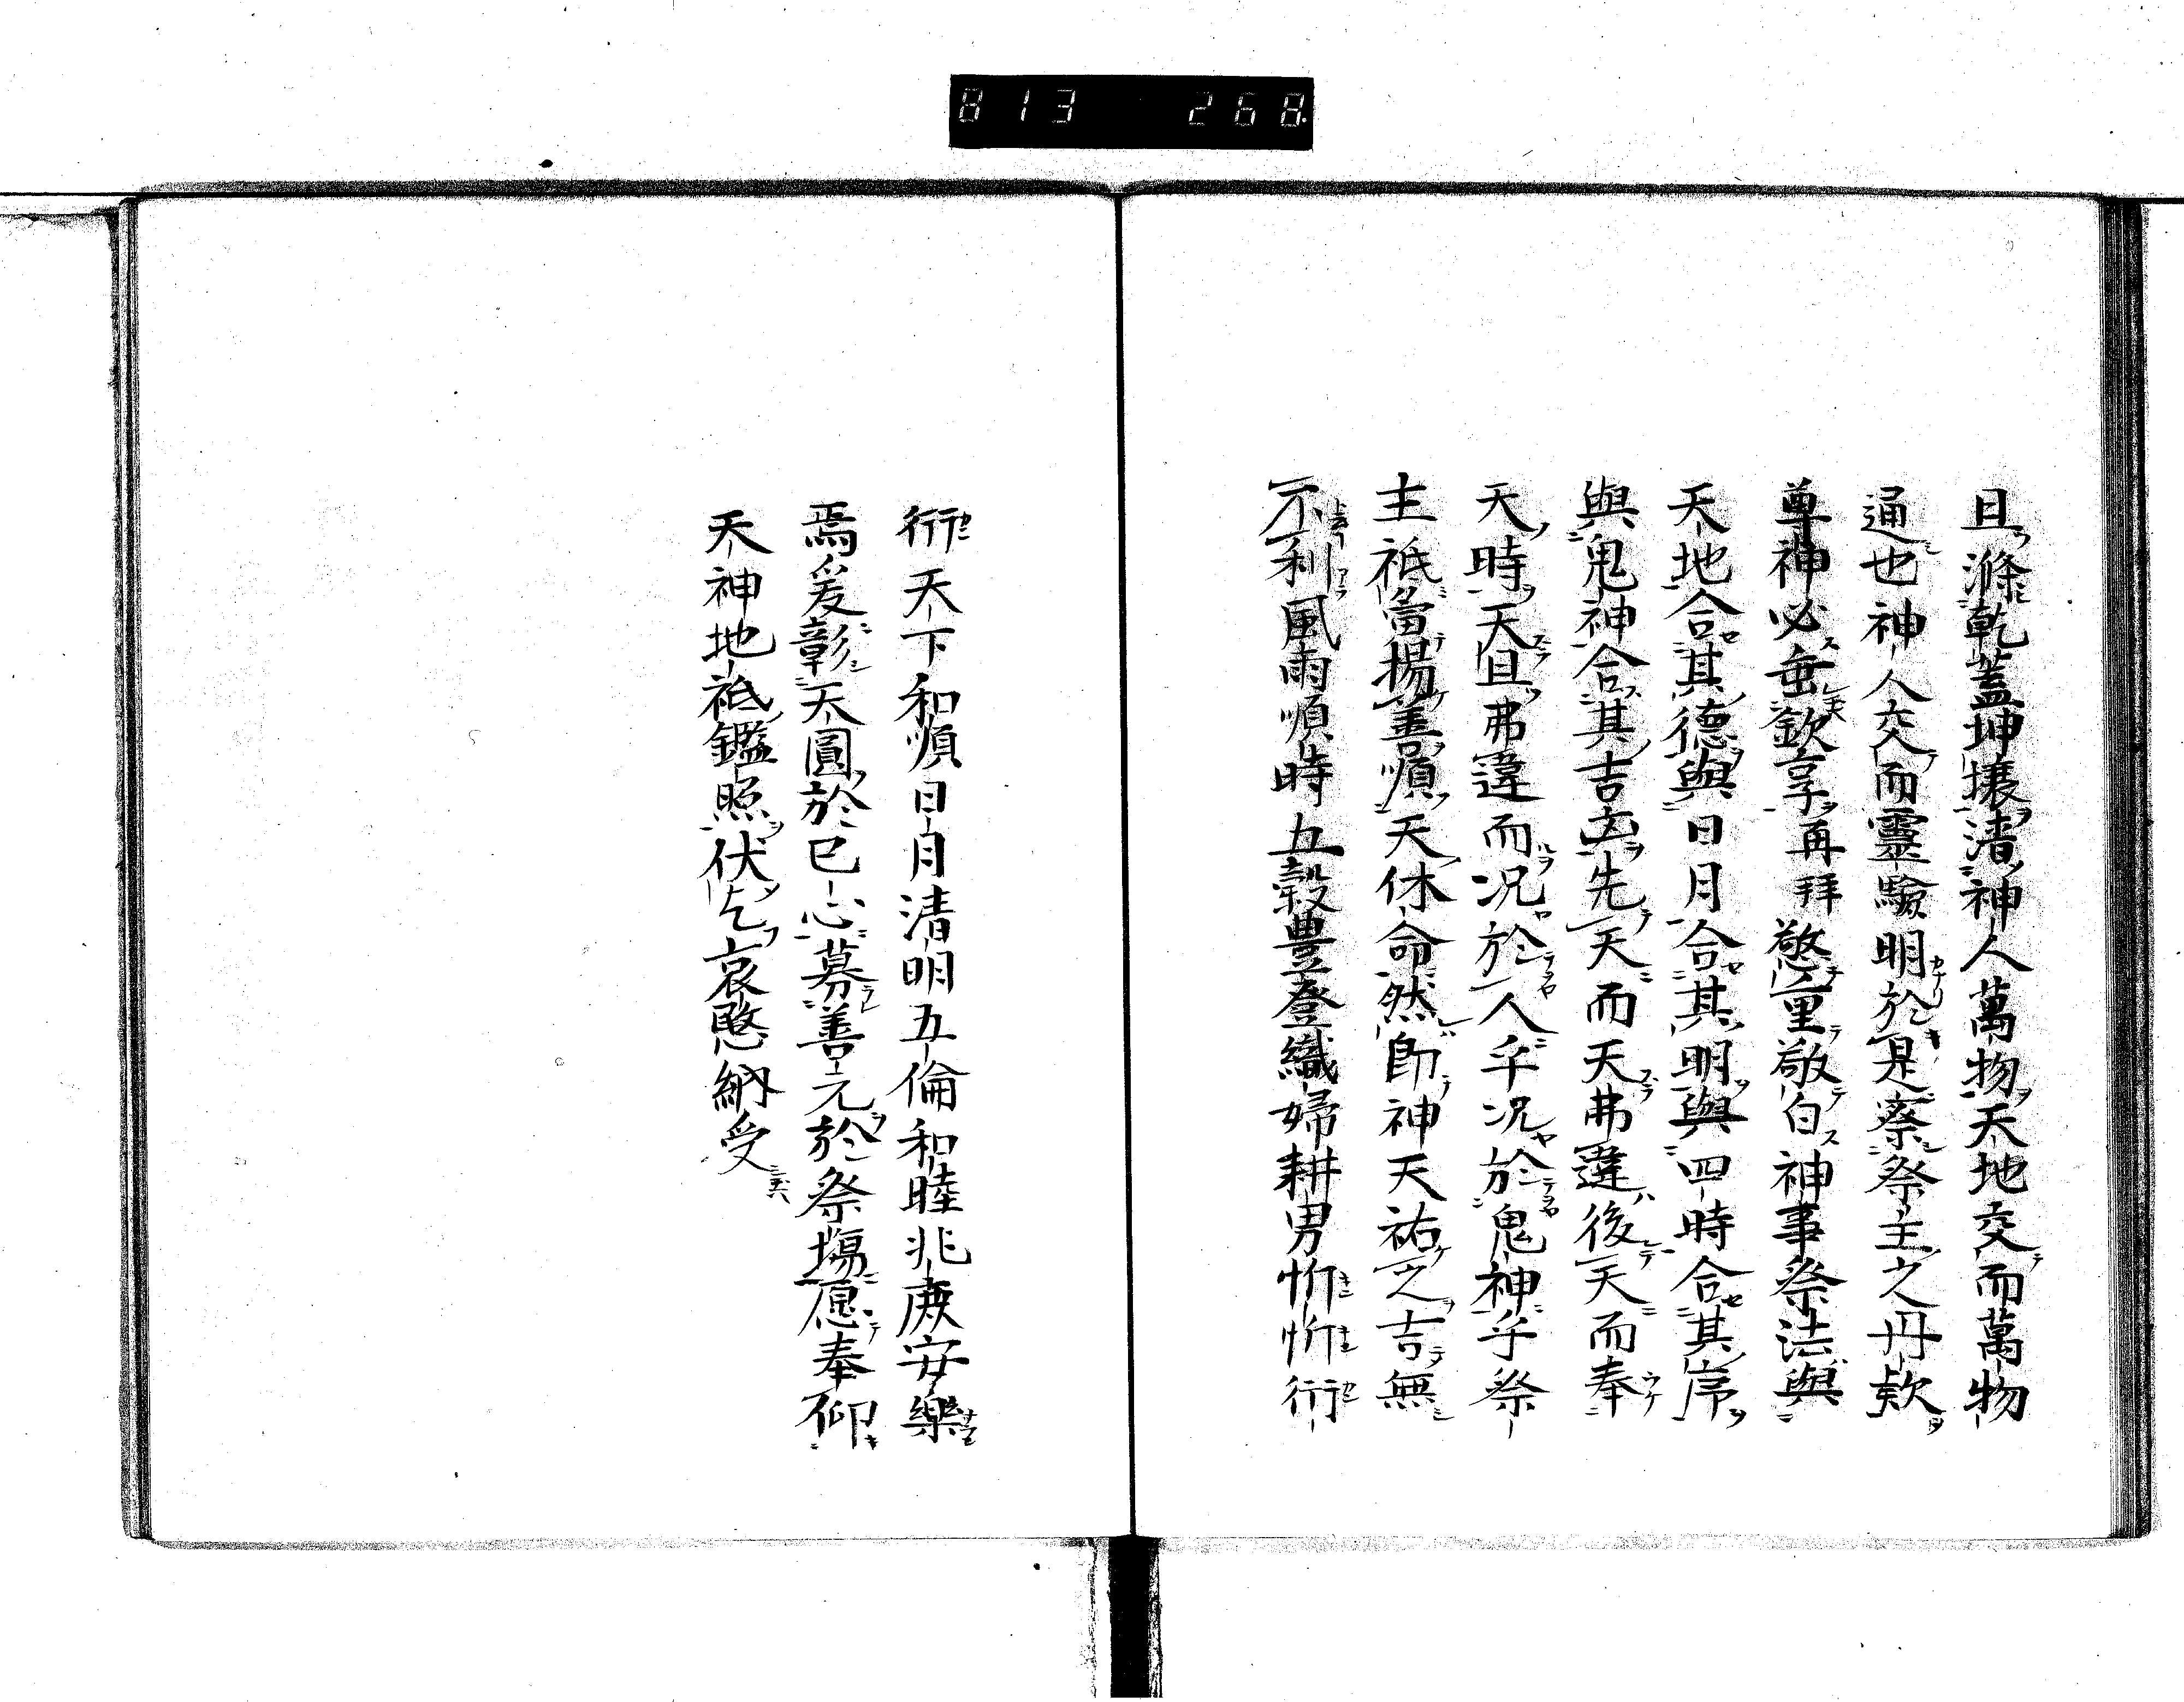 813 268
且滌乾蓋坤壤清神人萬物天地交而萬物
通也神人交而靈驗明於是察祭主之丹欵
尊神必垂歆享再拜慇重敬白神事祭法與
天地合其德與日月合其明與四時合其序
與鬼神合其吉凶先天而天弗違後天而奉
天時天且弗違而況於人乎況於鬼神乎祭
主祇當揚善順天休命然即神天祐之吉無
不利風雨順時五穀豊登織婦耕男忻忻衎
衎天下和順日月清明五倫和睦兆庶安樂
焉爰彰天圓於已心募善元於祭場愿奉仰
天神地祇鑑照伏乞哀愍納受